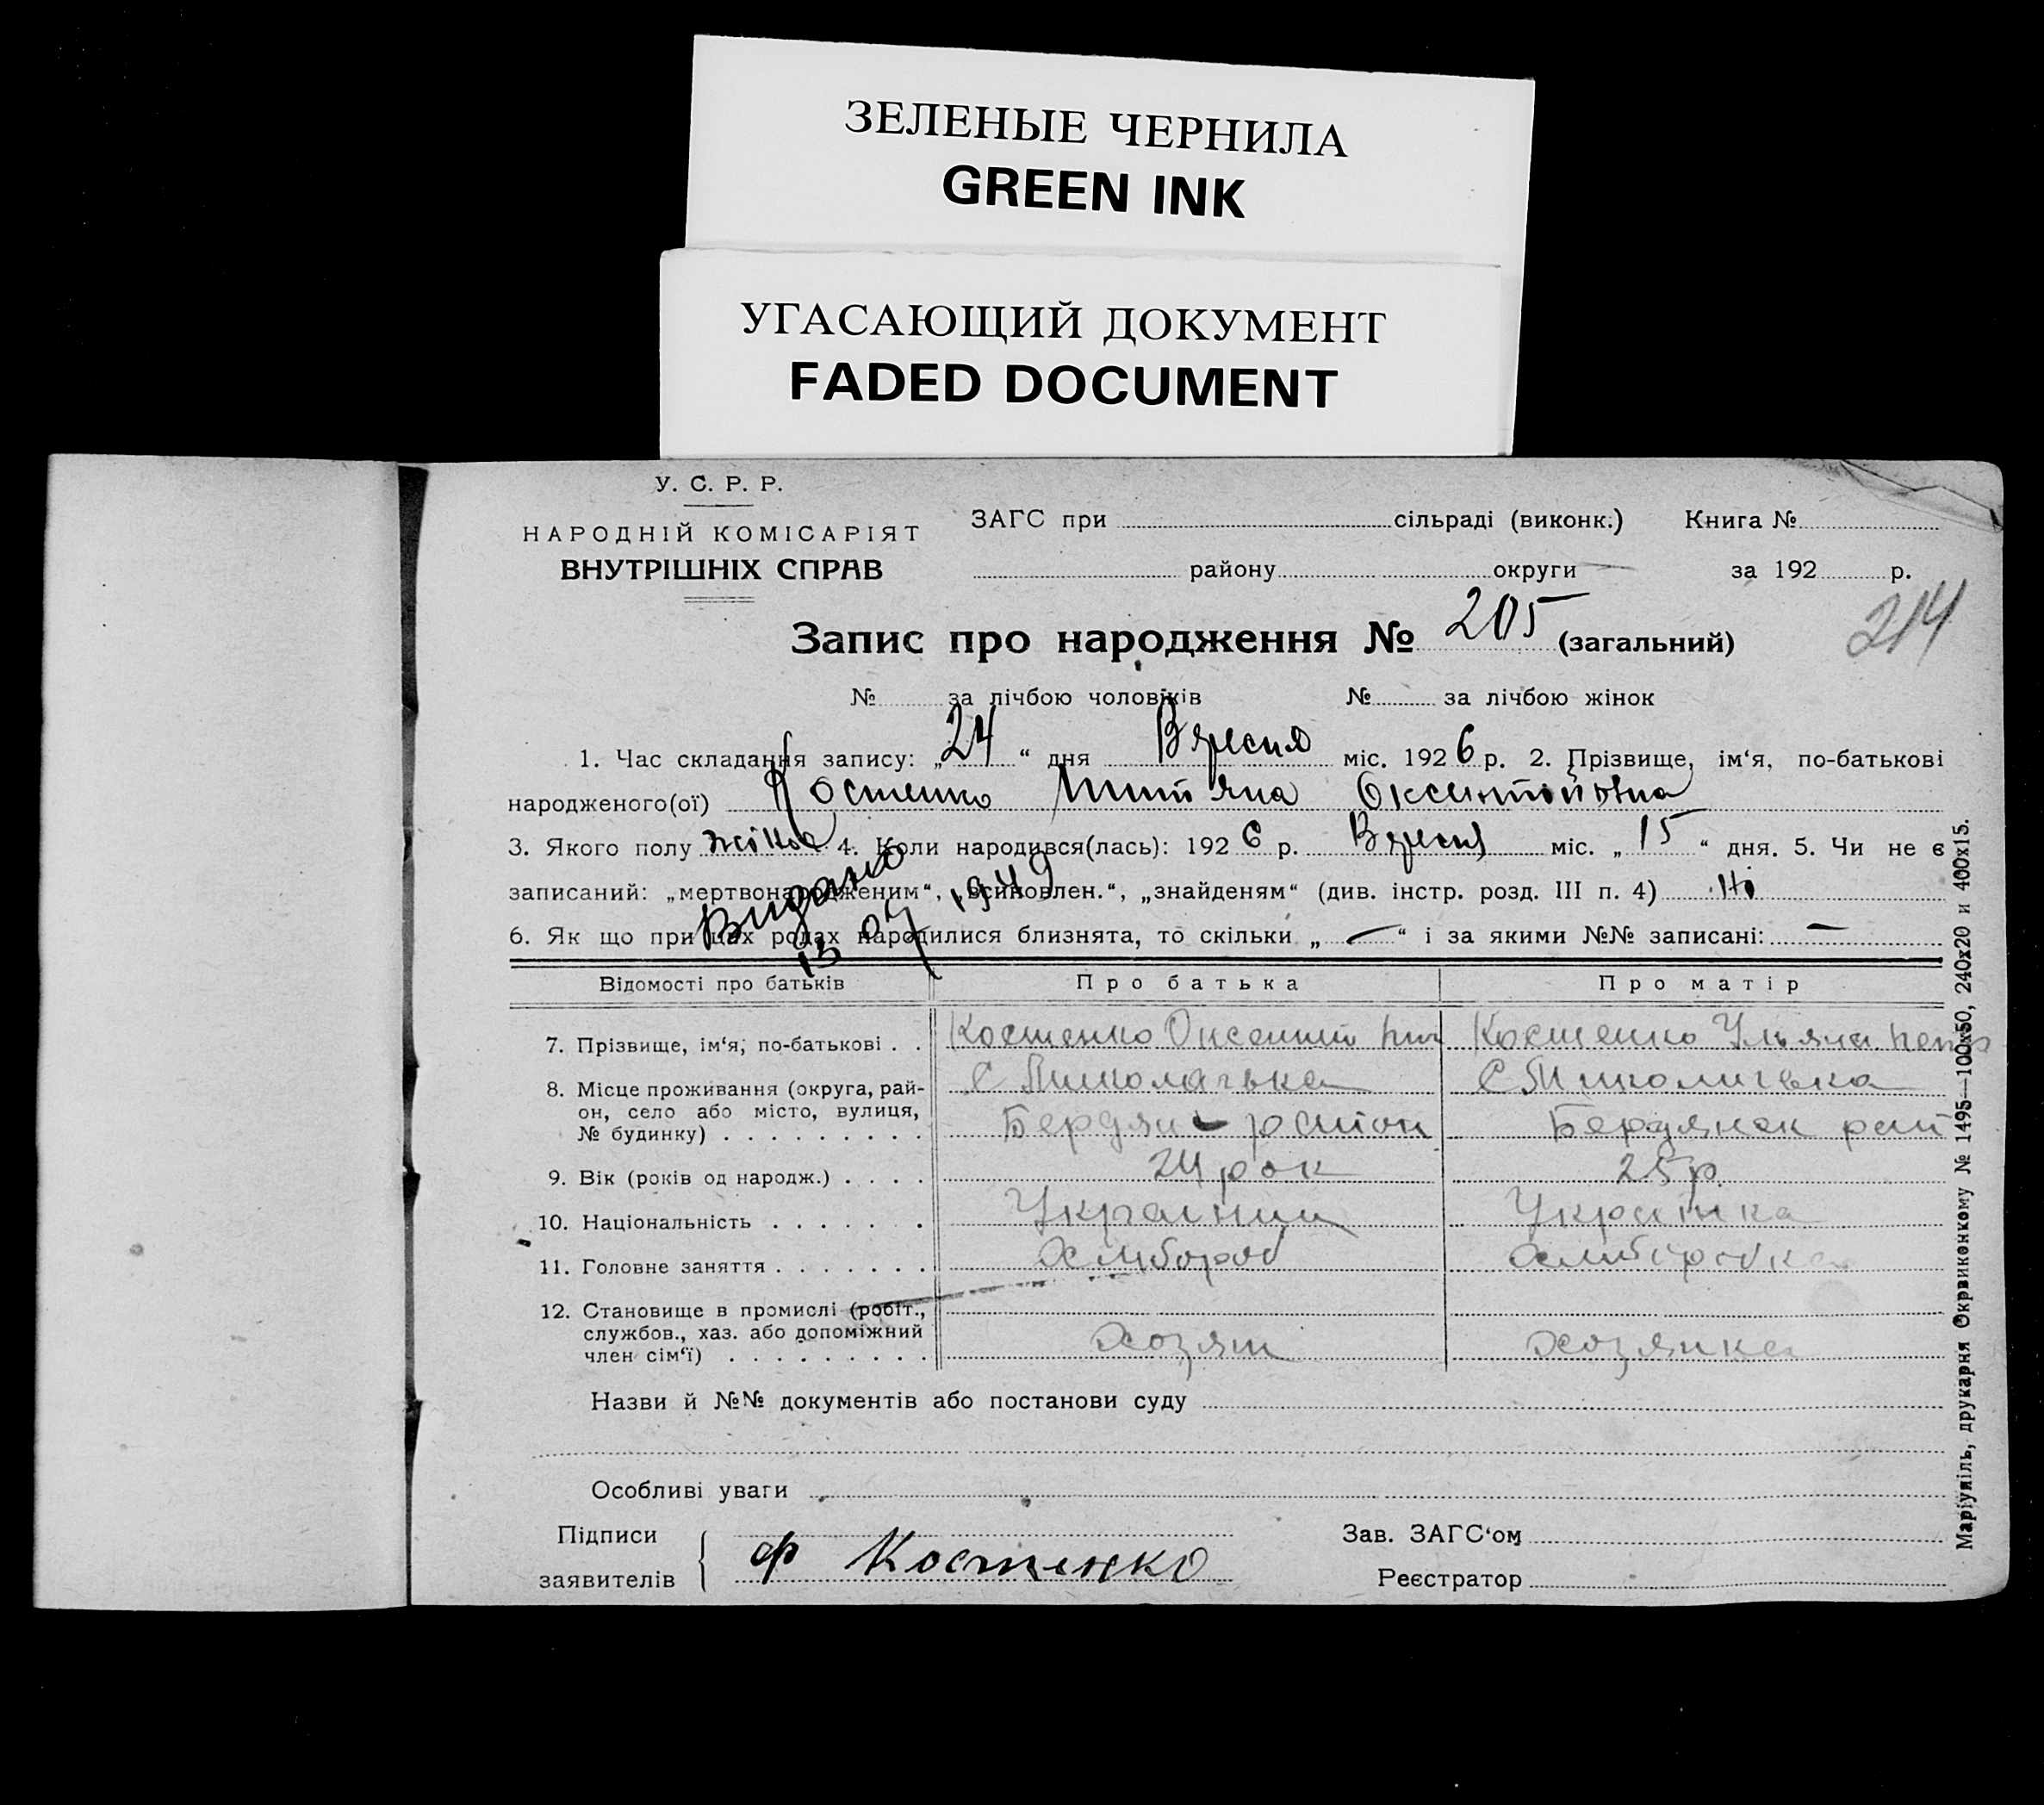 ЗЕЛЕНЫЕ ЧЕРНИЛА
GREEN INK
УГАСАЮЩИЙ ДОКУМЕНТ
FADED DOCUMENT
У. С. Р. Р.
НАРОДНІЙ КОМІСАРІЯТ
ВНУТРІШНІХ СПРАВ
ЗАГС при сільраді (виконк.) Книга №
району округи за 192 р.
214
Запис про народження № 205 (загальний)
№ за лічбою чоловіків № за лічбою жінок
1. Час складання запису: „24“ дня Вересня міс. 1926 р. 2. Прізвище, ім‘я, по-батькові
народженого(ої) Костенко Оксентойвна
3. Якого полу жіноч 4. Коли народився(лась): 1926 р. Вересня міс. „15“ дня. 5. Чи не є
записаний: „мертвонародженим“, „всиновлен.“, „знайденям“ (див. інстр. розд. III п. 4) Ні
Видано
13 07 1949
6. Як що при цих родах народилися близнята, то скільки „—“ і за якими №№ записані: —
Відомості про батьків Про батька Про матір
7. Прізвище, ім‘я, по-батькові . . Костенко Оксентий Костенко Ульяна Петр
8. Місце проживання (округа, рай- с Николаевка с Николаевка
он, село або місто, вулиця, Бердян район Бердянск рай
№ будинку) . . . . . . . . .
9. Вік (років од народж.) . . . . 24 рок 25 р.
10. Національність . . . . . . Украинин Украинка
11. Головне заняття . . . . . . . Хлибороб Хлиборобка
12. Становище в промислі (робіт.,
службов., хаз. або допоміжний Хозяин Хозяйка
член сім‘ї) . . . . . . . . .
Назви й №№ документів або постанови суду
Особливі уваги
Підписи Зав. ЗАГС‘ом
заявителів Ф Костенко Реєстратор
Маріупіль, друкарня Окрвиконкому № 1495—100x50, 240x20 и 400x15.